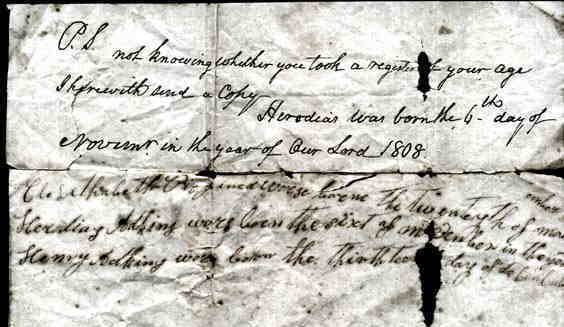 P.S. not knowing whether you took a register of your age
I herewith send a Copy
Herodias was born the 6th day of
Novemr in the year of Our Lord 1808
were borne the twentyth of
Herodias Adkins were born the sixt of in the
Henry Adkins were born the day of